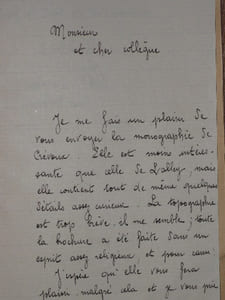 Monsieur
et cher collègue
Je me fais un plaisir de
vous envoyer la monographie de
Crévoux. Elle est moins intéres-
sante que celle de Vallouise, mais
elle contient tout de même quelques
détails assez curieux. La topographie
est trop brève, il me semble ; toute
la brochure a été faite dans un
esprit assez religieux, et pour cause.
J'espère qu'elle vous fera
plaisir malgré cela et je vous prie